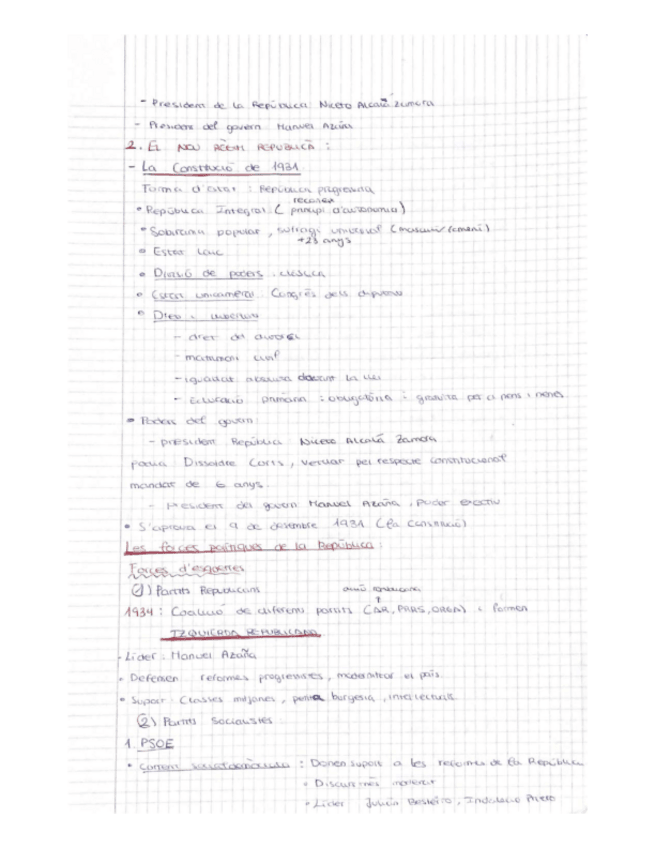 - President de la República Niceto Alcalá Zamora
- President del govern Manuel Azaña
2. EL NOU RÈGIM REPUBLICÀ :
- La Constitució de 1931
Forma d'estat : República progressista
reconeix
• República Integral ( principi d'autonomia )
• Sobirania popular , sufragi universal ( masculí / femení )
+23 anys
• Estat laic
• Divisió de poders clàssica
• Estat unicameral Congrés dels diputats
• Drets i llibertats
- dret de divorci
- matrimoni civil
- igualtat absoluta davant la llei
- Educació primària : obligatòria i gratuïta per a nens i nenes
• Poders del govern
- president República Niceto Alcalá Zamora
podia Dissoldre Corts , vetllar pel respecte constitucional
mandat de 6 anys.
- President del govern Manuel Azaña , Poder executiu
• S'aprova el 9 de desembre 1931 ( la Constitució )
Les forces polítiques de la República :
Forces d'esquerres
1) Partits Republicans
acció republicana
1934 : Coalició de diferents partits ( AR, PRRS, ORGA ) i formen
IZQUIERDA REPUBLICANA
- Líder : Manuel Azaña
• Defensen reformes progressistes , modernitzar el país
• Suport : Classes mitjanes , petita burgesia , intel·lectuals
2) Partits Socialistes
1. PSOE
• Corrent socialdemòcrata : Donen suport a les reformes de la República
• Discurs més moderat
• Líder Julián Besteiro , Indalecio Prieto